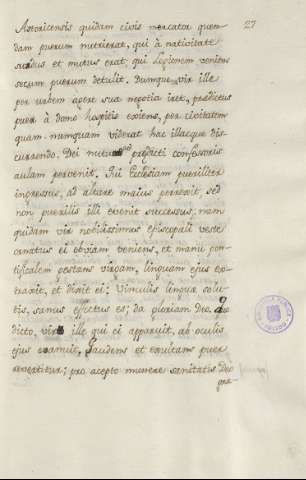 27
Astoricensis quidam civis mercator quen-
dam puerum nutrierat, qui à nativitate
surdus et mutus erat, qui Legionem veniens
secum puerum detulit. Dumque vir ille
per urbem agere sua negotia iret, predictus
puer à domo hospitis exiens, per civitatem
quam numquam viderat hac illacque dis-
currendo. Dei nutu predicti confessoris
aulam pervenit. Qui Ecclesiam pueriliter
ingressus, ad altare maius perrexit, sed
non puerilis illi evenit successus; nam
quidam vir nobilissimus episcopali veste
ornatus ei obviam veniens, et manu pon-
tificalem gestans virgam, linguam ejus ex-
traxit, et dixit ei: Vinculis linguæ solu-
tis, sanus effectus es; da gloriam Deo.
dicto, vir ille qui ei apparuit, ab oculis
ejus evanuit, Gaudens et exultans puer
revertitur; pro acepto munere sanitatis Deo
gra-